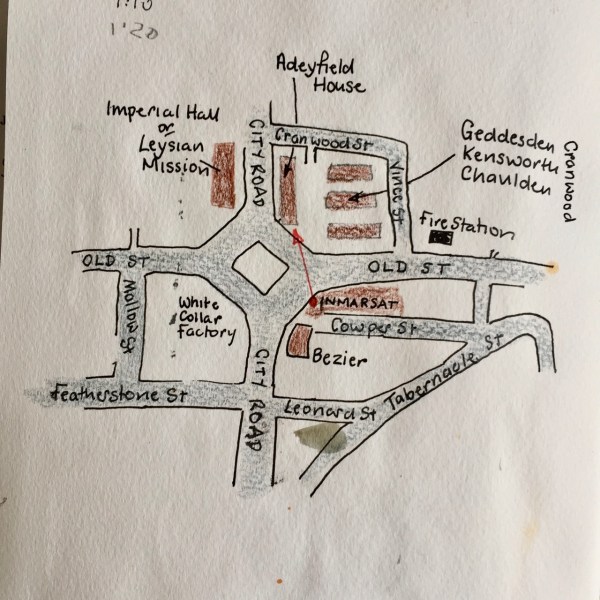 1:15
1:20
Adeyfield
House
Imperial Hall
or
Leysian
Mission
CITY ROAD
Cranwood St
Vince St
Geddesden
Kensworth
Chaulden
Cranwood
Fire Station
OLD ST
OLD ST
Mallow St
White
Collar
factory
INMARSAT
Cowper St
Bezier
CITY ROAD
Tabernacle St
Featherstone St
Leonard St